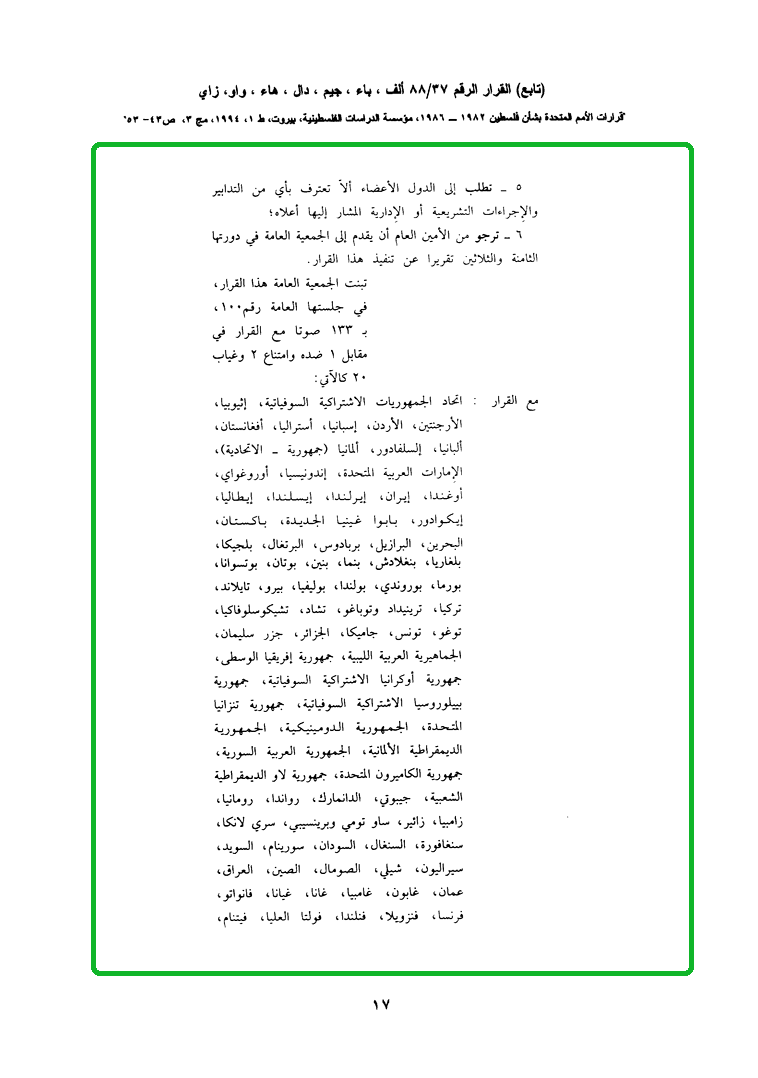 (تابع) القرار الرقم ٨٨/٣٧ ألف ، باء ، جيم ، دال ، هاء ، واو، زاي
قرارات الأمم المتحدة بشأن فلسطين ١٩٨٢ ــ ١٩٨٦، مؤسسة الدراسات الفلسطينية، بيروت، ط ١، ١٩٩٤، مج ٣، ص٤٣- ٥٣
٥ ــ تطلب إلى الدول الأعضاء ألاّ تعترف بأي من التدابير
والإجراءات التشريعية أو الإدارية المشار إليها أعلاه؛
٦ ــ ترجو من الأمين العام أن يقدم إلى الجمعية العامة في دورتها
الثامنة والثلاثين تقريرا عن تنفيذ هذا القرار.
تبنت الجمعية العامة هذا القرار،
في جلستها العامة رقم ١٠٠،
بـ ١٣٣ صوتا مع القرار في
مقابل ١ ضده وامتناع ٢ وغياب
٢٠ كالآتي:
مع القرار : اتحاد الجمهوريات الاشتراكية السوفياتية، إثيوبيا،
الأرجنتين، الأردن، إسبانيا، أستراليا، أفغانستان،
ألبانيا، إلسلفادور، ألمانيا (جمهورية ــ الاتحادية)،
الإمارات العربية المتحدة، إندونيسيا، أوروغواي،
أوغندا، إيران، إيرلندا، إيسلندا، إيطاليا،
إيكوادور، بابوا غينيا الجديدة، باكستان،
البحرين، البرازيل، بربادوس، البرتغال، بلجيكا،
بلغاريا، بنغلادش، بنما، بنين، بوتان، بوتسوانا،
بورما، بوروندي، بولندا، بوليفيا، بيرو، تايلاند،
تركيا، ترينيداد وتوباغو، تشاد، تشيكوسلوفاكيا،
توغو، تونس، جاميكا، الجزائر، جزر سليمان،
الجماهيرية العربية الليبية، جمهورية إفريقيا الوسطى،
جمهورية أوكرانيا الاشتراكية السوفياتية، جمهورية
بييلوروسيا الاشتراكية السوفياتية، جمهورية تنزانيا
المتحدة، الجمهورية الدومينيكية، الجمهورية
الديمقراطية الألمانية، الجمهورية العربية السورية،
جمهورية الكاميرون المتحدة، جمهورية لاو الديمقراطية
الشعبية، جيبوتي، الدانمارك، رواندا، رومانيا،
زامبيا، زائير، ساو تومي وبرينسيبي، سري لانكا،
سنغافورة، السنغال، السودان، سورينام، السويد،
سيراليون، شيلي، الصومال، الصين، العراق،
عمان، غابون، غامبيا، غانا، غيانا، فانواتو،
فرنسا، فنزويلا، فنلندا، فولتا العليا، فيتنام،
١٧